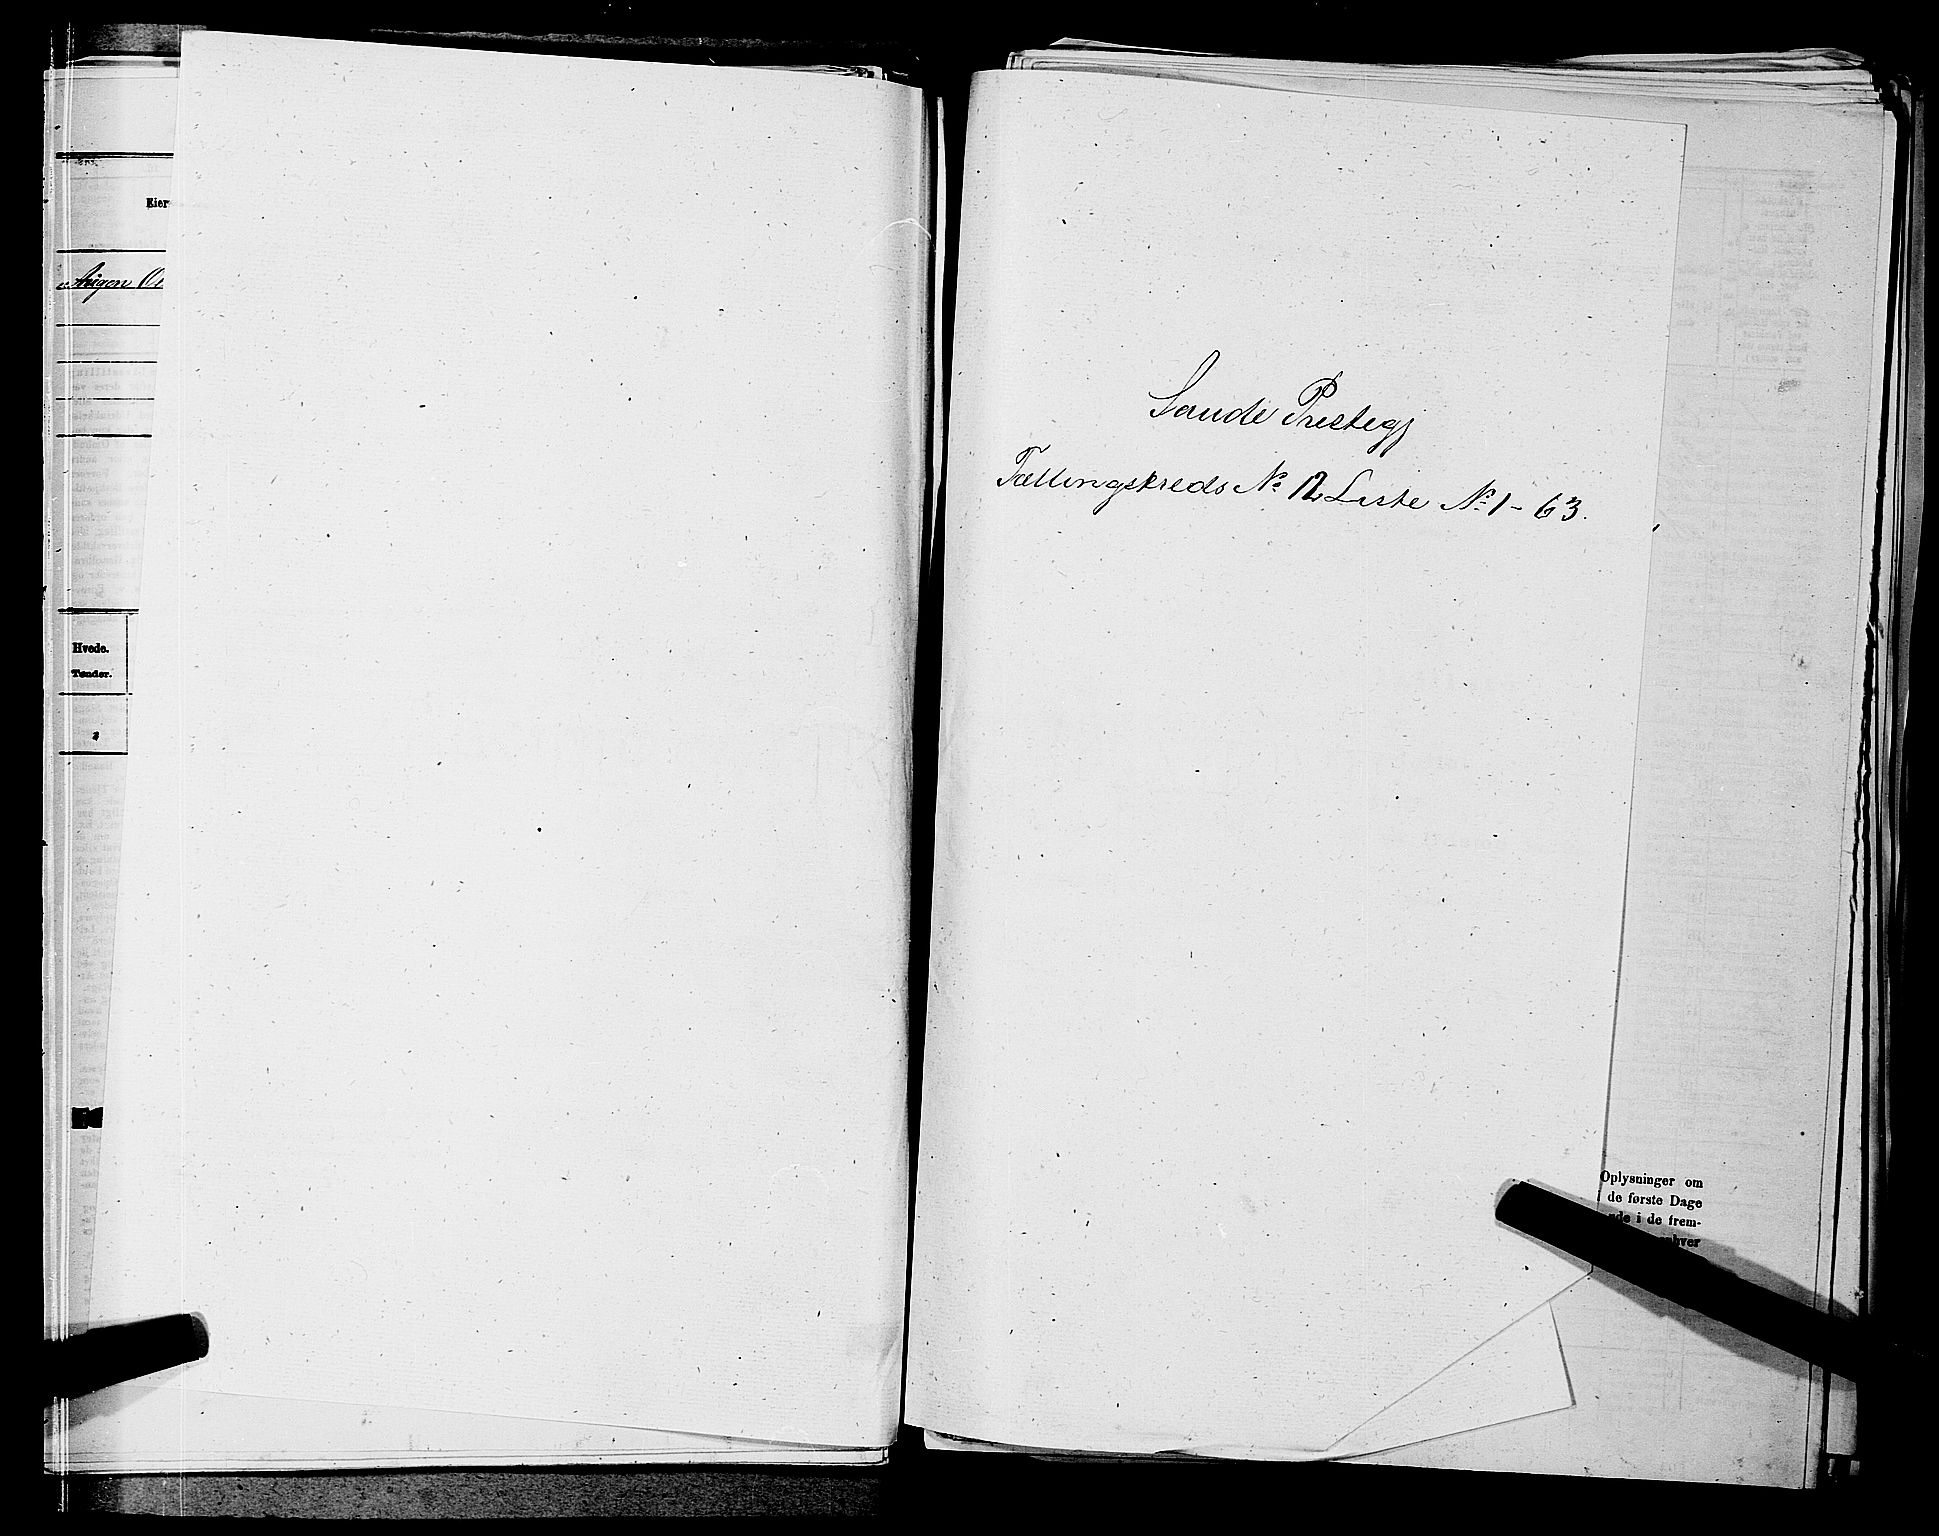 Eier
Hvede.
Tønder.
Saude Prestegj
Tællingskreds No 12 Liste No 1 - 63.
Oplysninger om
de første Dage
i de frem-